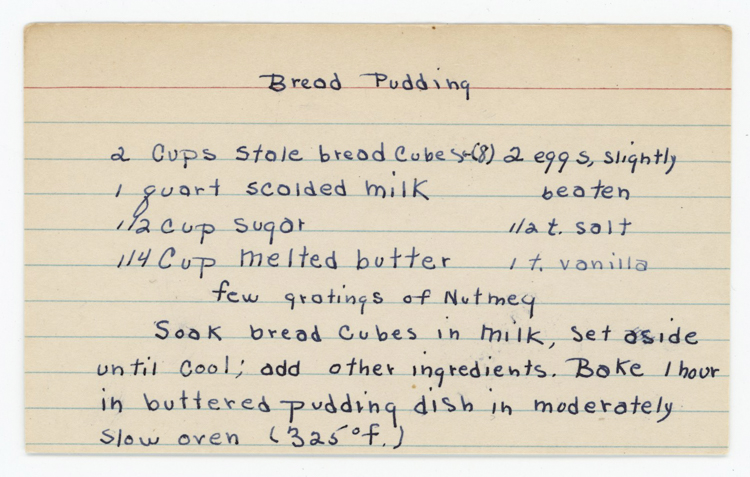 Bread Pudding
2 Cups stale bread Cubes-(8) 2 eggs, slightly
1 quart scalded milk beaten
1/2 cup sugar 1/2 t. salt
1/4 Cup melted butter 1 t. vanilla
few gratings of Nutmeg
Soak bread Cubes in milk, set aside
until cool; add other ingredients. Bake 1 hour
in buttered pudding dish in moderately
slow oven (325°f.)